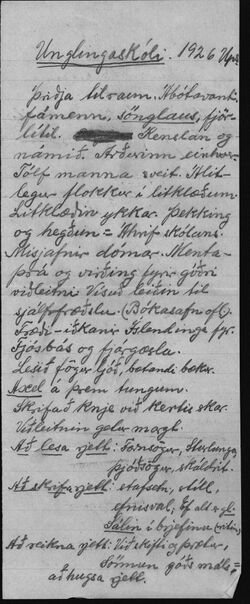 Unglingaskóli. 1926
Þriðja tilraun. Ábótavant:
fámenn, sönglaus, fjör-
lítil. Kenslan og
námið. Arðurinn einhver
Tólf manna sveit. Álit-
legur flokkur í litklæðum.
Litklæðin ykkar þekking
og hegðun = Áhrif skólans.
Misjafnir dómar. Menta-
þrá og virðing fyrir góðri
viðleitni Vísuð leiðin til
sjálfsfræðslu. (Bókasafn ofl.)
Fræði-iðkanir Íslendinga fyr.
Fjósbás og fjárgæsla.
Lesið fögur ljóð, betandi bækr.
Axel á þrem tungum.
Skrifað knje við kertis skar.
Viðleitnin getur margt.
Að lesa rjett: Fornsögur, Sturlunga
þjóðsögur, skáldrit.
Að skrifa rjett: stafsetn, stíll,
efnisval,
Sálin í brjefinu
Að reikna rjett: Viðskifti og
góðs mál-
að hugsa rjett.